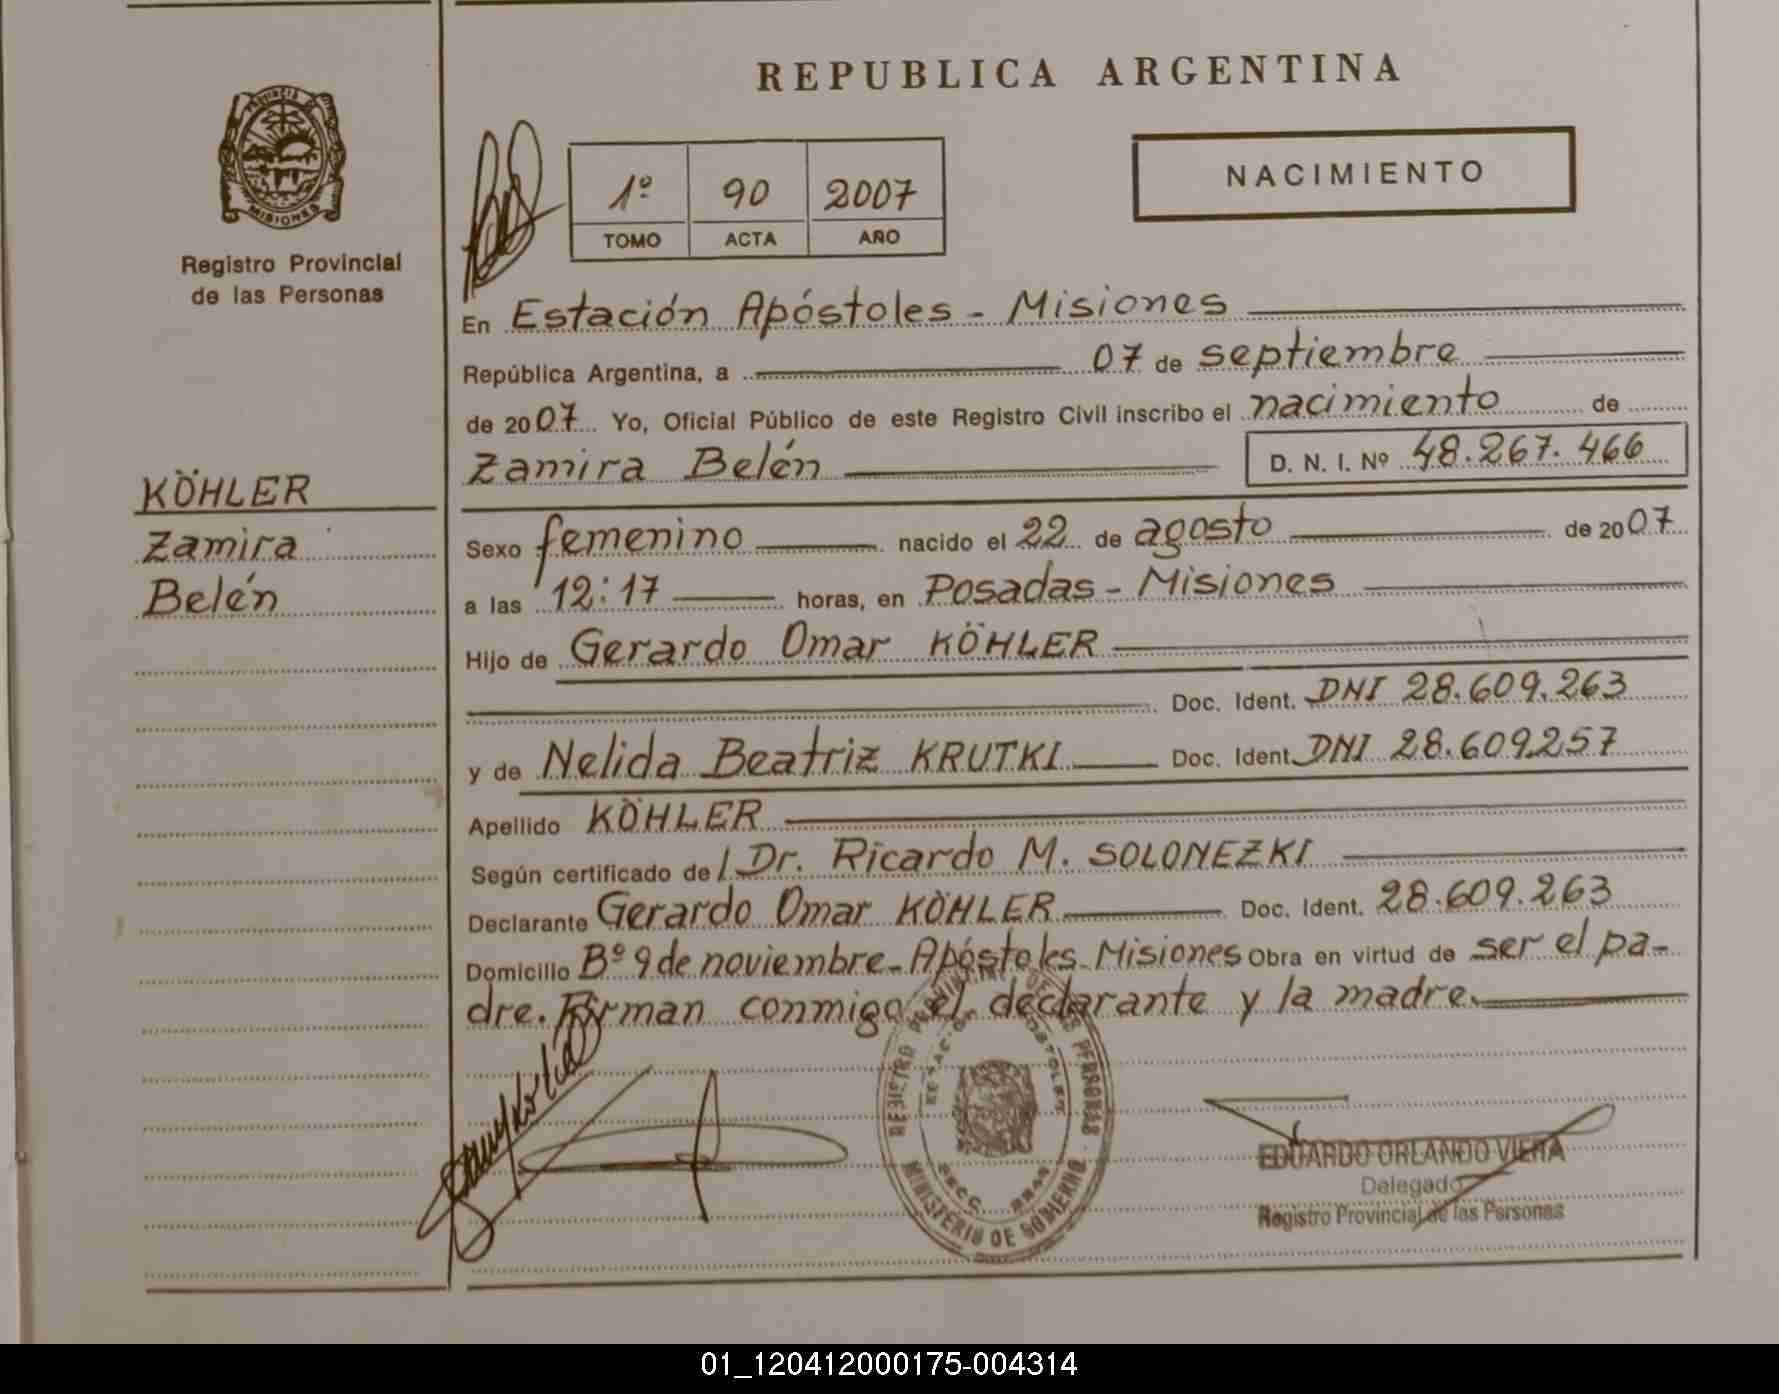 REPUBLICA ARGENTINA
PROVINCIA DE
MISIONES
Registro Provincial
de las Personas
1º 90 2007
TOMO ACTA AÑO
NACIMIENTO
En Estación Apóstoles - Misiones
República Argentina, a 07 de septiembre
de 2007 Yo, Oficial Público de este Registro Civil inscribo el nacimiento de
Zamira Belén D. N. I. Nº 48.267.466
KÖHLER
Zamira
Belén
Sexo femenino nacido el 22 de agosto de 2007
a las 12:17 horas, en Posadas - Misiones
Hijo de Gerardo Omar KÖHLER
Doc. Ident. DNI 28.609.263
y de Nelida Beatriz KRUTKI Doc. Ident. DNI 28.609257
Apellido KÖHLER
Según certificado de l Dr. Ricardo M. SOLONEZKI
Declarante Gerardo Omar KÖHLER Doc. Ident. 28.609.263
Domicilio Bº 9 de noviembre - Apóstoles - Misiones Obra en virtud de ser el pa-
dre. Firman conmigo el declarante y la madre.
REGISTRO PROVINCIAL DE LAS PERSONAS
ESTACION APOSTOLES
MINISTERIO DE GOBIERNO
EDUARDO ORLANDO VIERA
Delegado
Registro Provincial de las Personas
01_120412000175-004314